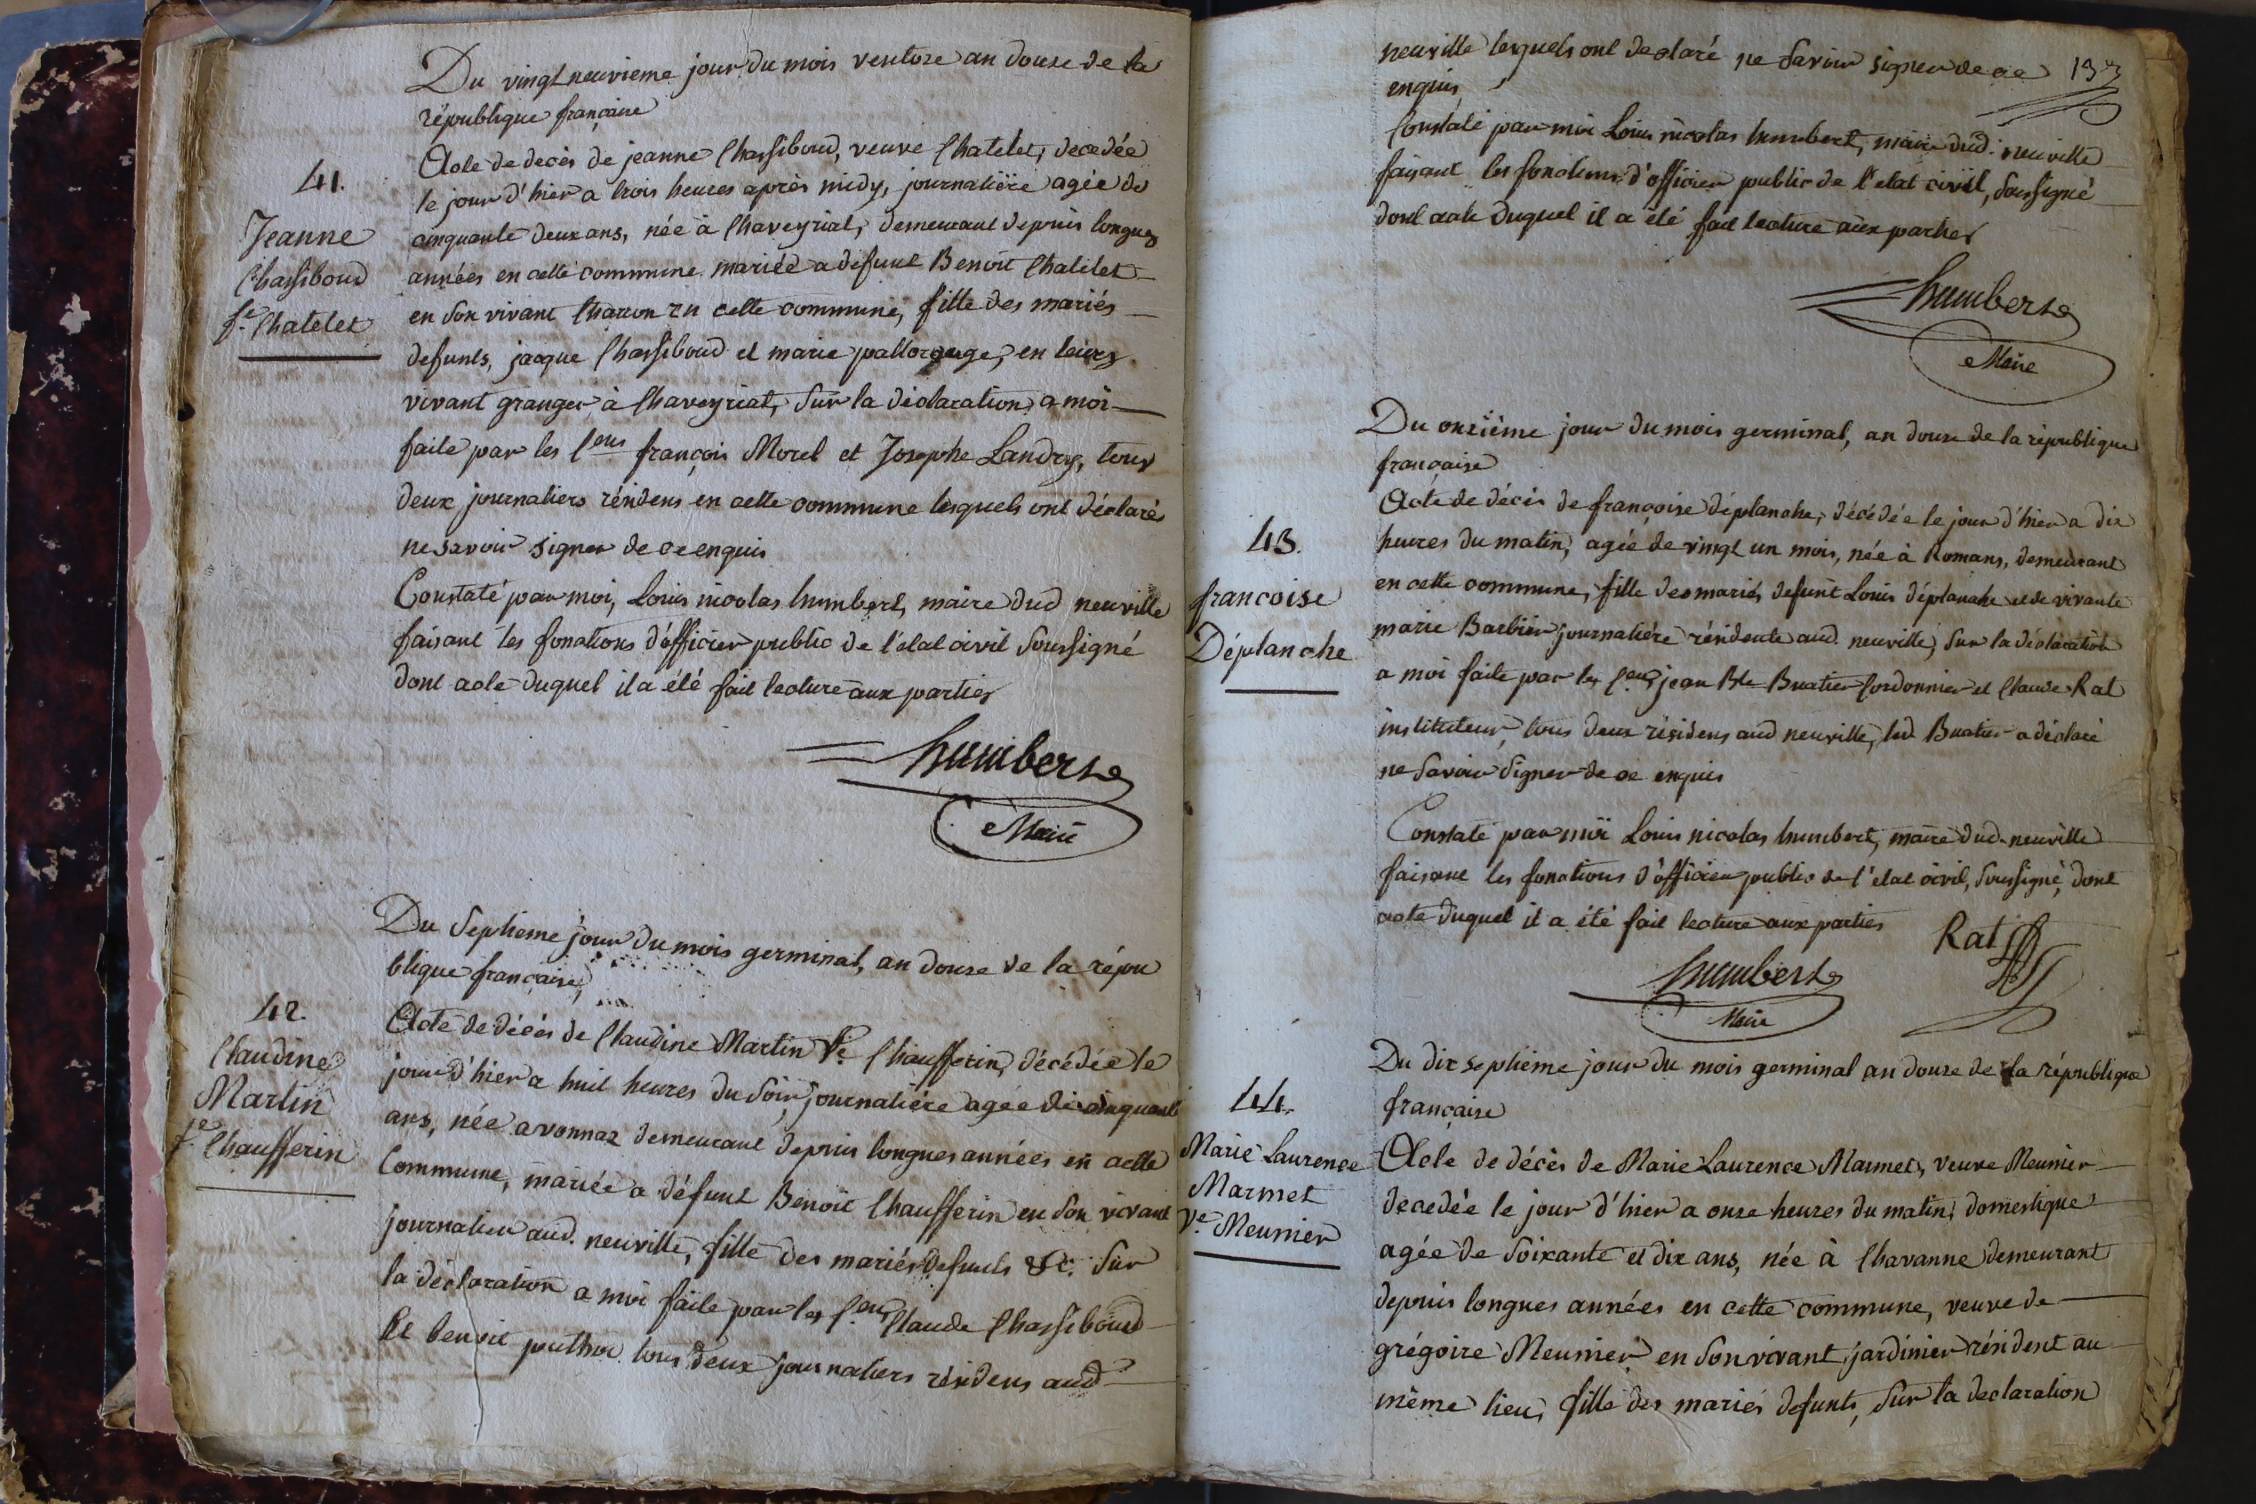 Du vingt neuvieme jour du mois ventose an douze de la
république française
41.
Jeanne
Chassiboud
fe. Chatelet
Acte de decès de jeanne Chassiboud, veuve Chatelet, decedée
le jour d'hier a trois heures après midy, journalière agée de
cinquante deux ans, née à Chaveyriat, demeurant depuis longues
années en cette commune. mariée a defunt Benoit Chatelet
en son vivant Charon en cette commune, fille des mariés
defunts, jacque Chassiboud et marie en leurs
vivant granger à Chaveyriat, sur la déclaration a moi
faite par les Cens françois Morel et Josephe Landry, tous
deux journaliers résidens en cette commune lesquels ont déclarés
ne savoir signer de ce enquis
Constaté par moi, Louis nicolas humbert, maire dud neuville
faisant les fonctions d'officier public de l'état civil soussigné
dont acte duquel il a été fait lecture aux parties
humbert
Maire
Du septieme jour du mois germinal, an douze de la répu
blique française,
42.
Claudine
Martin
fe. Chaufferin
Acte de décès de Claudine Martin Ve. Chaufferin, décédée le
jour d'hier a huit heures du soir, journalière agée de cinquante
ans, née a vonnaz demeurant depuis longues années en cette
Commune, mariée a défunt Benoit Chaufferin en son vivant
journalier aud. neuville, fille des mariés defunts &c. sur
la déclaration a moi faite par les Cens Claude Chassiboud
Et benoit puthod tous deux journaliers résidens aud
neuville lesquels ont declaré ne savoir signer de ce
enquis
Constaté par moi Louis nicolas humbert, maire dud. neuville
faisant les fonctions d'officier public de l'etat civil, soussigné
dont acte duquel il a été fait lecture aux parties
humbert
Maire
Du onzième jour du mois germinal, an douze de la république
française
43.
francoise
Déplanche
Acte de décès de françoise déplanche, décédée le jour d'hier a dix
heures du matin, agée de vingt un mois, née à Romans, demeurant
en cette commune, fille des mariés defunt Louis déplanche et de vivante
marie Barbier journalière résidente aud. neuville, sur la déclaration
a moi faite par les Cens jean Bte Buatier Cordonnier et Claude Rat
instituteur, tous deux résidens aud neuville, led Buatier a déclaré
ne savoir signer de ce enquis
Constaté par moi Louis nicolas humbert, maire dud. neuville
faisant les fonctions d'officier public de l'etat civil, soussigné, dont
acte duquel il a été fait lecture aux parties
Rat
humbert
Maire
Du dix septième jour du mois germinal an douze de la république
française
44.
Marie Laurence
Marmet
Ve. Meunier
Acte de décès de Marie Laurence Marmet, veuve Meunier
decedée le jour d'hier a onze heures du matin, domestique
agée de soixante et dix ans, née à Chavanne demeurant
depuis longues années en cette commune, veuve de
grégoire Meunier en son vivant, jardinier résident au
même lieu, fille des mariés defunts, sur la declaration